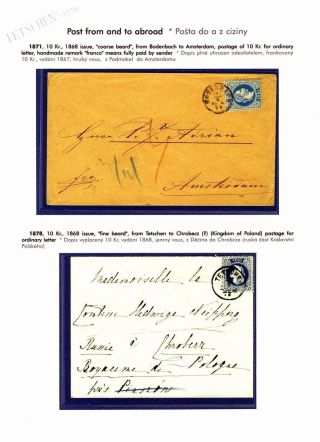 TETSCHEN
Post from and to abroad * Pošta do a z ciziny
1871, 10 Kr., 1868 issue, "coarse beard", from Bodenbach to Amsterdam, postage of 10 Kr. for ordinary
letter, handmade remark "franco" means fully paid by sender * Dopis plně uhrazen odesílatelem, frankovaný
10 Kr., vydání 1867, hrubý vous, z Podmokel do Amsterdamu
Herrn P. J. Adrian
fro
Amsterdam
1878, 10 Kr., 1868 issue, "fine beard", from Tetschen to Chrobecz (?) (Kingdom of Poland) postage for
ordinary letter * Dopis vyplacený 10 Kr. vydání 1868, jemný vous, z Děčína do Chrobcze (ruská část Království
Polského)
TETSCHEN
Mademoiselle la
Comtesse Hedwige Neipperg
Russie à Chroberz
Royaume de Pologne
près Pinczów